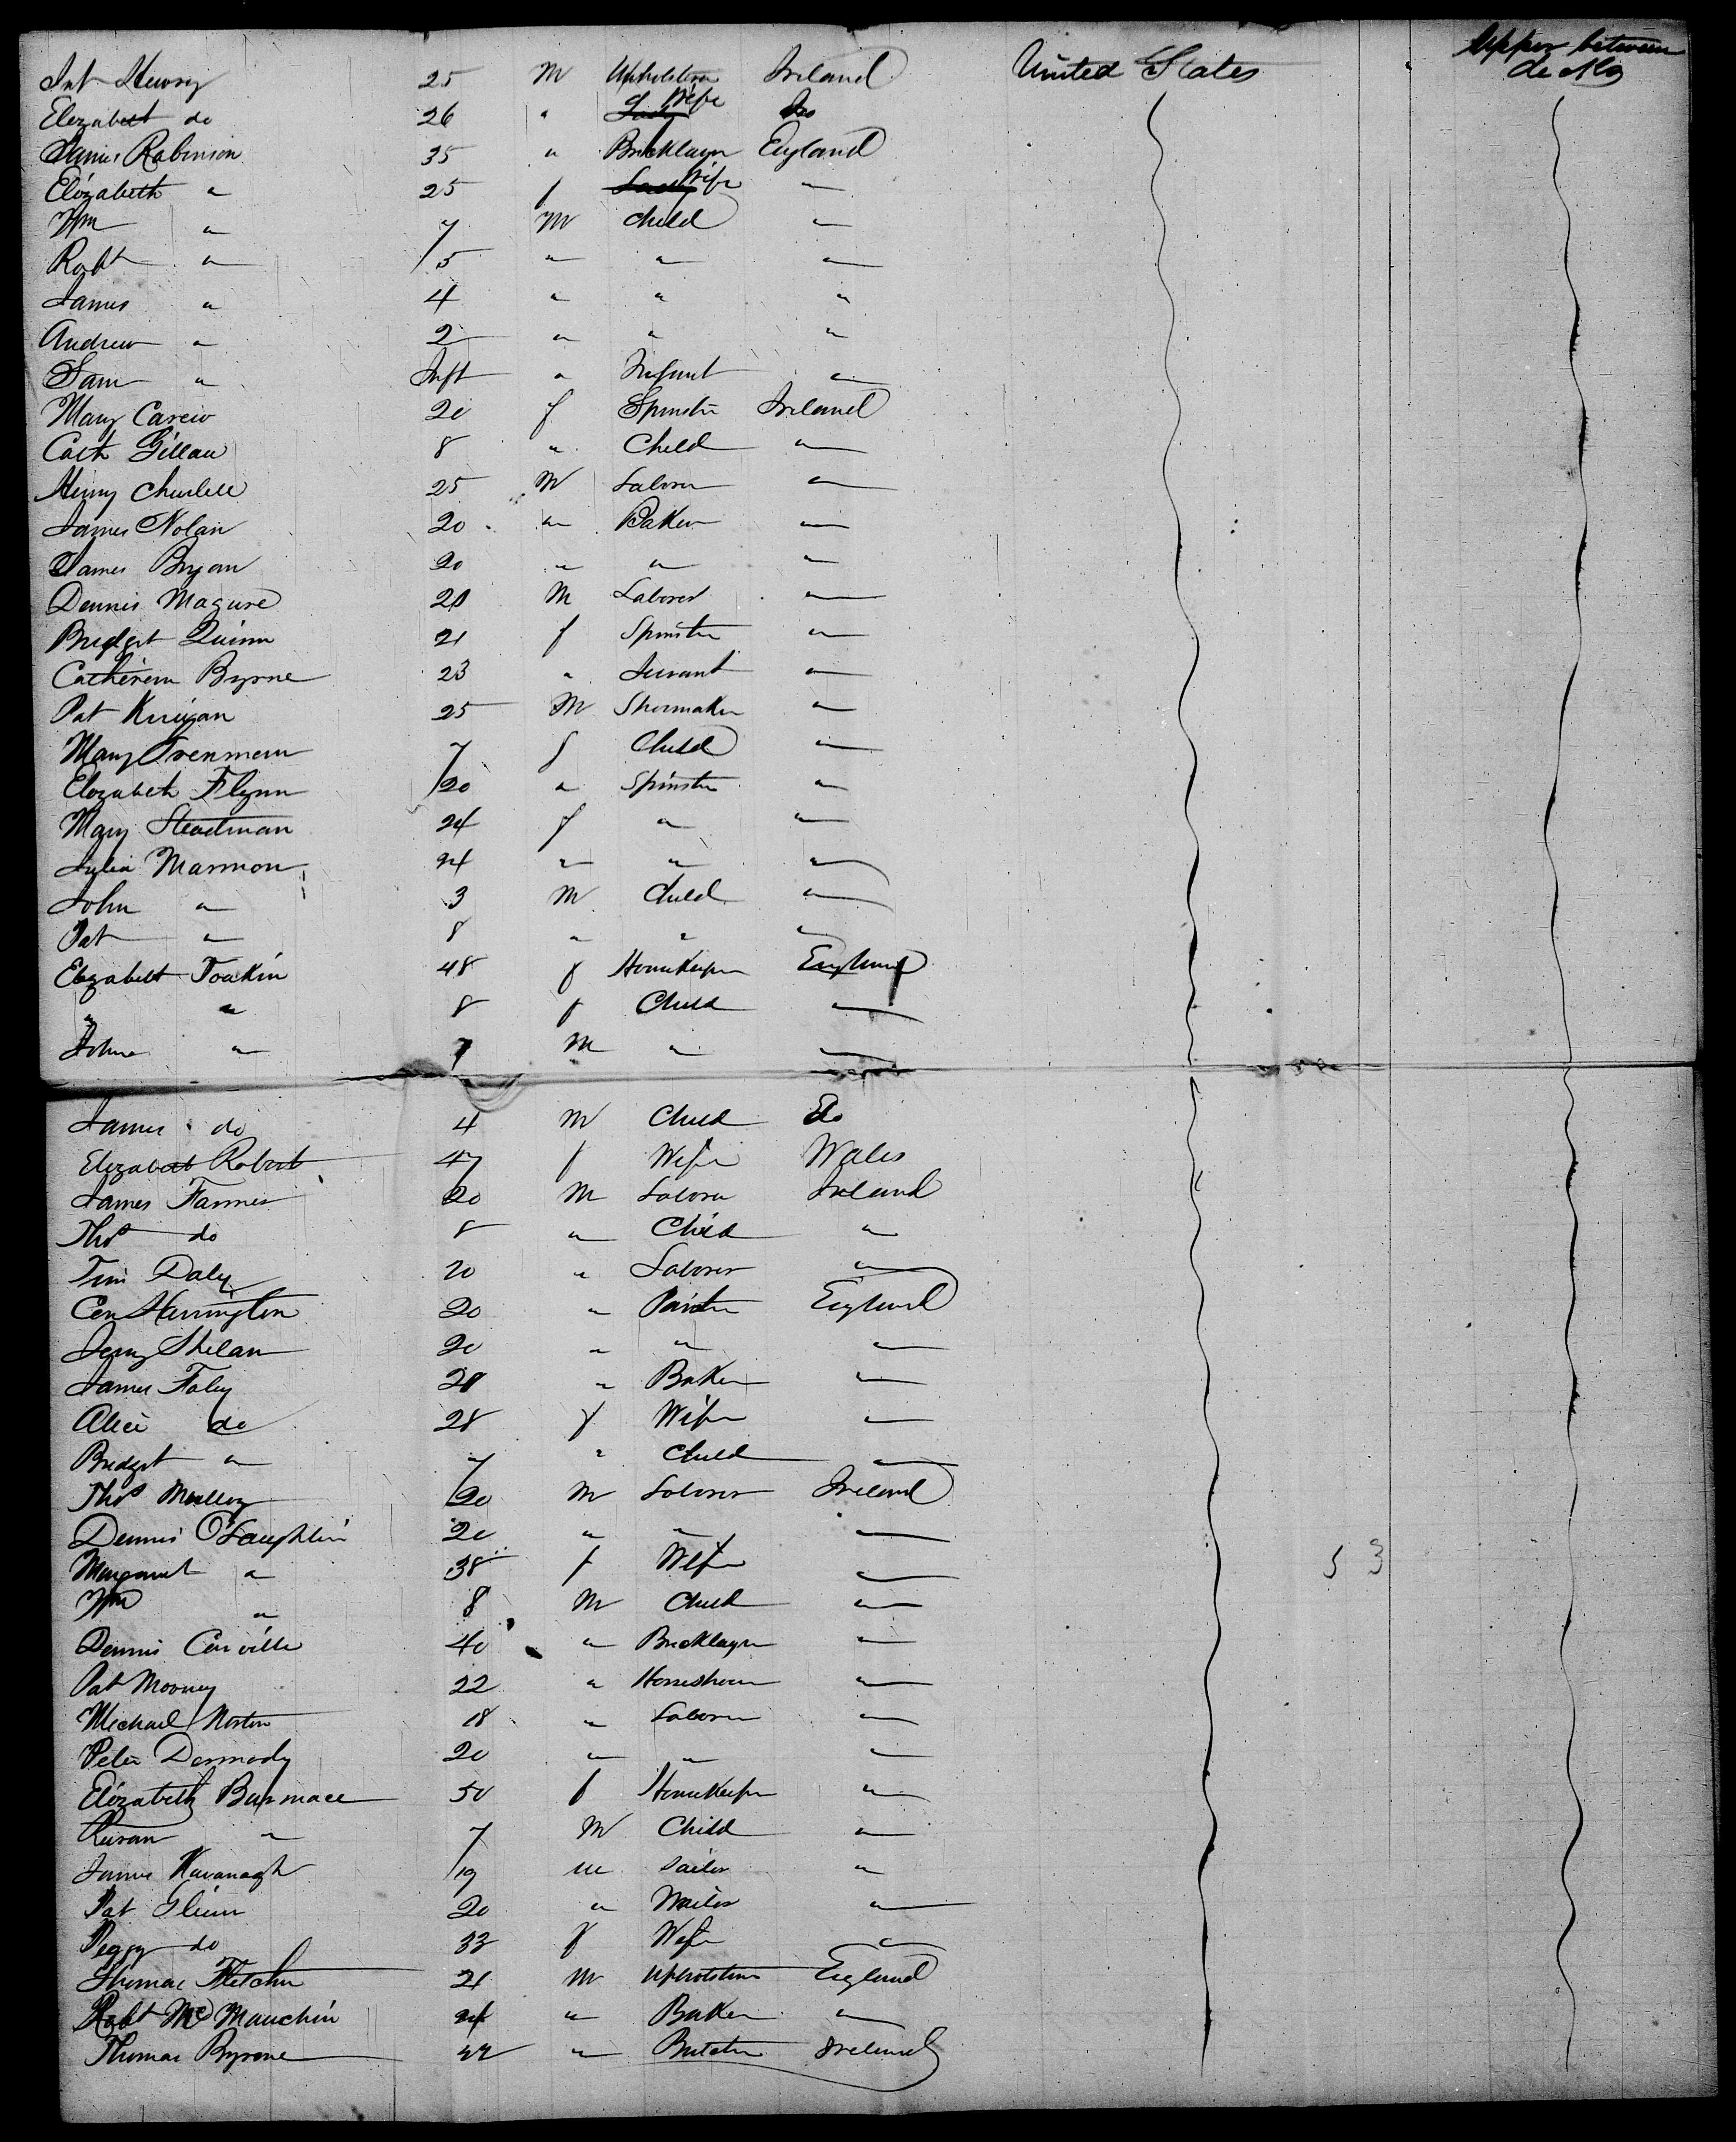 Upper between
Int Henry 25 M Upholsterer Ireland United States decks
Elizabeth do 26 " Lady Wife Do
James Robinson 35 " Bricklayer England
Elizabeth " 25 f Lady Wife "
Wm " 7 M Child "
Robt " 5 " " "
James " 4 " " "
Andrew " 2 " " "
Sam " Inft " Infant "
Mary Carew 20 f Spinster Ireland
Cath Gillan 8 " Child "
Henry 25 M Laborer "
James Nolan 20 " Baker "
James Bryan 20 " " "
Dennis Maguire 20 M Laborer "
Bridget Quinn 21 f Spinster "
Catherine Byrne 23 " Servant "
Pat Kerrigan 25 M Shoemaker "
Mary 7 f Child "
Elizabeth Flynn 20 " Spinster "
Mary Steadman 24 f " "
Julia Marmon 24 " " "
John " 3 M Child "
Pat " 8 " " "
Elizabeth Toakin 48 f HouseKeeper England
" " 8 f Child "
John " 7 M " "
James do 4 M Child Do
Elizabeth Robert 47 f Wife Wales
James Farmer 20 M Laborer Ireland
Thos do 8 " Child "
Tim Daly 20 " Laborer "
Herrington 20 " Painter England
Jerry Shelan 20 " " "
James Foley 28 " Baker "
Alice do 28 f Wife "
Bridget " 7 " Child "
Thos Mulloy 20 M Laborer Ireland
Dennis O'Laughlin 20 " " "
Margaret " 38 f Wife " 53
Wm " 8 M Child "
Dennis Conville 40 " Bricklayer "
Pat Mooney 22 " Horseshoer "
Michael Norton 18 " Laborer "
Peter Dermody 20 " " "
Elizabeth Burmace 50 f HouseKeeper "
" 7 M Child "
James Kavanagh 19 M Sailor "
Pat Glinn 20 " "
Peggy do 33 f Wife "
Thomas Fletcher 21 M Upholsterer England
Robt Mc Mauchin 24 " Baker "
Thomas Byrone 22 " Butcher Ireland